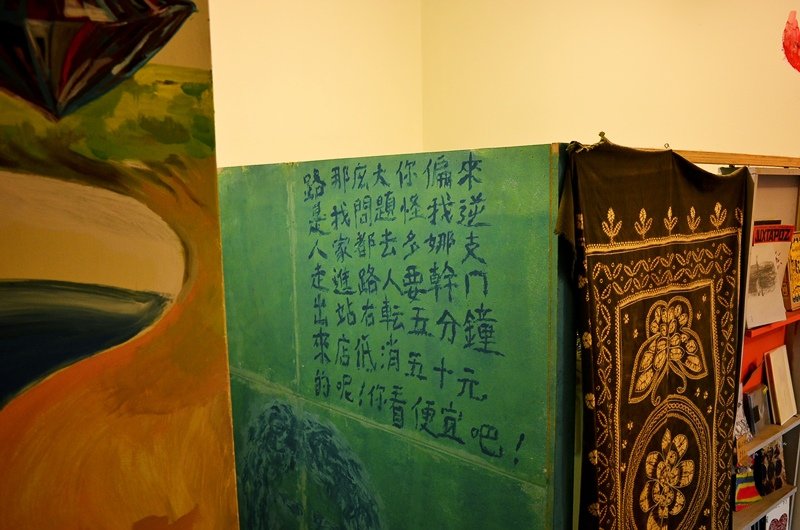 路那庅大你偏來
是我問題怪我逆
人家都去多娜支
走進路人要幹ㄇ
出站右転五分鐘
來店低消五十元
的呢！你看便宜吧！
JUXTAPOZ